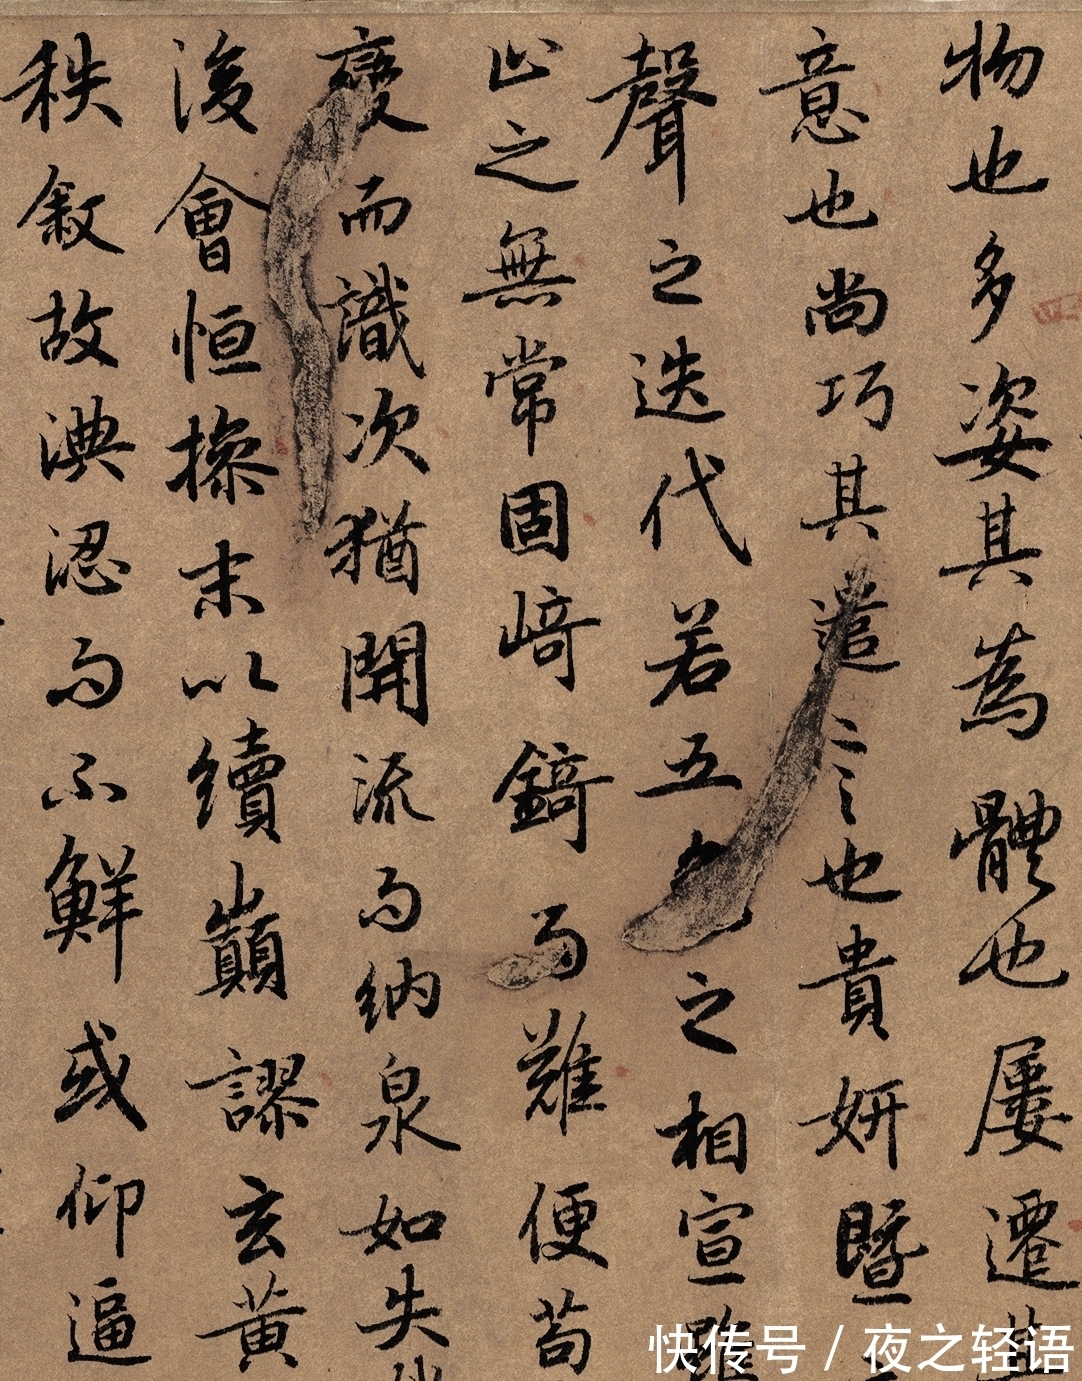 物也多姿其為體也屢遷其
意也尚巧其遣言之也貴妍暨
聲之迭代若五色之相宣雖
止之無常固崎錡而難便苟
變而識次猶開流而納泉如失
後會恒操末以續巔謬玄黃
秩敘故淟涊而不鮮或仰逼
快传号 / 夜之轻语